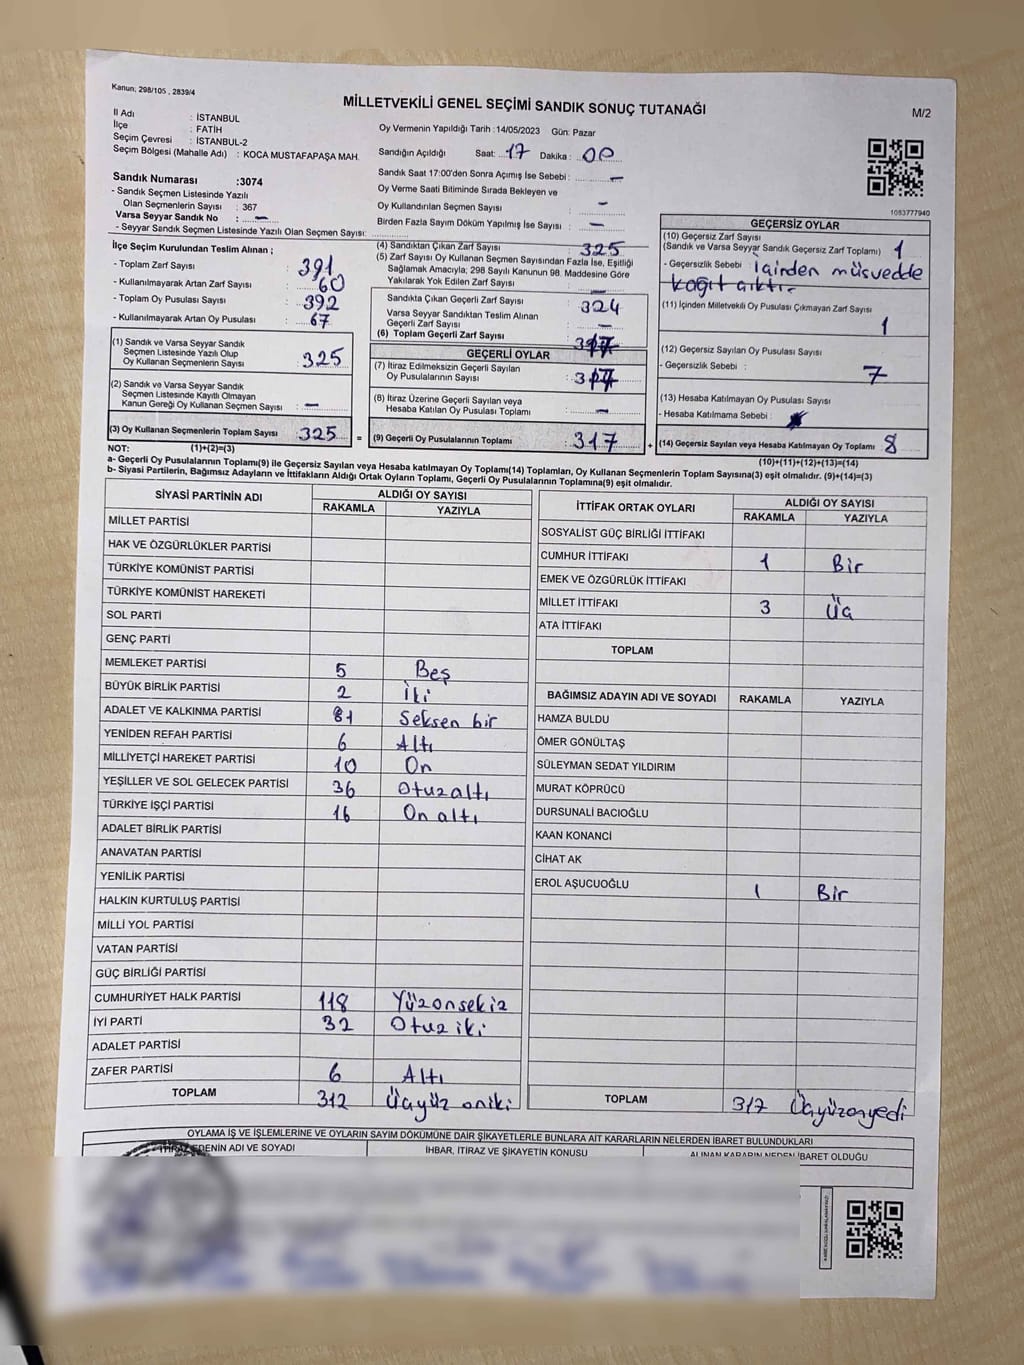 Kanun; 298/105 , 2839/4
MİLLETVEKİLİ GENEL SEÇİMİ SANDIK SONUÇ TUTANAĞI
M/2
İl Adı : İSTANBUL
İlçe : FATİH
Seçim Çevresi : İSTANBUL-2
Seçim Bölgesi (Mahalle Adı) : KOCA MUSTAFAPAŞA MAH.
Oy Vermenin Yapıldığı Tarih :14/05/2023 Gün: Pazar
Sandığın Açıldığı Saat: 17 Dakika : 00
Sandık Saat 17:00'den Sonra Açımış İse Sebebi : —
Oy Verme Saati Bitiminde Sırada Bekleyen ve
Oy Kullandırılan Seçmen Sayısı : —
Birden Fazla Sayım Döküm Yapılmış İse Sayısı : —
Sandık Numarası :3074
- Sandık Seçmen Listesinde Yazılı
Olan Seçmenlerin Sayısı : 367
Varsa Seyyar Sandık No : —
- Seyyar Sandık Seçmen Listesinde Yazılı Olan Seçmen Sayısı:
1053777940
İlçe Seçim Kurulundan Teslim Alınan ;
- Toplam Zarf Sayısı : 391
- Kullanılmayarak Artan Zarf Sayısı : 60
- Toplam Oy Pusulası Sayısı : 392
- Kullanılmayarak Artan Oy Pusulası : 67
(1) Sandık ve Varsa Seyyar Sandık
Seçmen Listesinde Yazılı Olup
Oy Kullanan Seçmenlerin Sayısı : 325
(2) Sandık ve Varsa Seyyar Sandık
Seçmen Listesinde Kayıtlı Olmayan
Kanun Gereği Oy Kullanan Seçmen Sayısı : —
(3) Oy Kullanan Seçmenlerin Toplam Sayısı : 325
(4) Sandıktan Çıkan Zarf Sayısı : 325
(5) Zarf Sayısı Oy Kullanan Seçmen Sayısından Fazla İse, Eşitliği
Sağlamak Amacıyla; 298 Sayılı Kanunun 98. Maddesine Göre
Yakılarak Yok Edilen Zarf Sayısı :
Sandıkta Çıkan Geçerli Zarf Sayısı : 324
Varsa Seyyar Sandıktan Teslim Alınan
Geçerli Zarf Sayısı : —
(6) Toplam Geçerli Zarf Sayısı :
GEÇERLİ OYLAR
(7) İtiraz Edilmeksizin Geçerli Sayılan
Oy Pusulalarının Sayısı :
(8) İtiraz Üzerine Geçerli Sayılan veya
Hesaba Katılan Oy Pusulası Toplamı : —
= (9) Geçerli Oy Pusulalarının Toplamı : 317
GEÇERSİZ OYLAR
(10) Geçersiz Zarf Sayısı
(Sandık ve Varsa Seyyar Sandık Geçersiz Zarf Toplamı) 1
- Geçersizlik Sebebi İçinden müsvedde
kağıt çıktı.
(11) İçinden Milletvekili Oy Pusulası Çıkmayan Zarf Sayısı
1
(12) Geçersiz Sayılan Oy Pusulası Sayısı
- Geçersizlik Sebebi : 7
(13) Hesaba Katılmayan Oy Pusulası Sayısı
- Hesaba Katılmama Sebebi :
+ (14) Geçersiz Sayılan veya Hesaba Katılmayan Oy Toplamı 8
NOT: (1)+(2)=(3)
(10)+(11)+(12)+(13)=(14)
a- Geçerli Oy Pusulalarının Toplamı(9) ile Geçersiz Sayılan veya Hesaba katılmayan Oy Toplamı(14) Toplamları, Oy Kullanan Seçmenlerin Toplam Sayısına(3) eşit olmalıdır. (9)+(14)=(3)
b- Siyasi Partilerin, Bağımsız Adayların ve İttifakların Aldığı Ortak Oyların Toplamı, Geçerli Oy Pusulalarının Toplamına(9) eşit olmalıdır.
SİYASİ PARTİNİN ADI ALDIĞI OY SAYISI
RAKAMLA YAZIYLA
MİLLET PARTİSİ
HAK VE ÖZGÜRLÜKLER PARTİSİ
TÜRKİYE KOMÜNİST PARTİSİ
TÜRKİYE KOMÜNİST HAREKETİ
SOL PARTİ
GENÇ PARTİ
MEMLEKET PARTİSİ 5 Beş
BÜYÜK BİRLİK PARTİSİ 2 İki
ADALET VE KALKINMA PARTİSİ 81 Seksen bir
YENİDEN REFAH PARTİSİ 6 Altı
MİLLİYETÇİ HAREKET PARTİSİ 10 On
YEŞİLLER VE SOL GELECEK PARTİSİ 36 Otuzaltı
TÜRKİYE İŞÇİ PARTİSİ 16 On altı
ADALET BİRLİK PARTİSİ
ANAVATAN PARTİSİ
YENİLİK PARTİSİ
HALKIN KURTULUŞ PARTİSİ
MİLLİ YOL PARTİSİ
VATAN PARTİSİ
GÜÇ BİRLİĞİ PARTİSİ
CUMHURİYET HALK PARTİSİ 118 Yüzonsekiz
İYİ PARTİ 32 Otuz iki
ADALET PARTİSİ
ZAFER PARTİSİ 6 Altı
TOPLAM 312 Üçyüz oniki
İTTİFAK ORTAK OYLARI ALDIĞI OY SAYISI
RAKAMLA YAZIYLA
SOSYALİST GÜÇ BİRLİĞİ İTTİFAKI
CUMHUR İTTİFAKI 1 Bir
EMEK VE ÖZGÜRLÜK İTTİFAKI
MİLLET İTTİFAKI 3 Üç
ATA İTTİFAKI
TOPLAM
BAĞIMSIZ ADAYIN ADI VE SOYADI RAKAMLA YAZIYLA
HAMZA BULDU
ÖMER GÖNÜLTAŞ
SÜLEYMAN SEDAT YILDIRIM
MURAT KÖPRÜCÜ
DURSUNALİ BACIOĞLU
KAAN KONANCİ
CİHAT AK
EROL AŞUCUOĞLU 1 Bir
TOPLAM 317 Üçyüzonyedi
OYLAMA İŞ VE İŞLEMLERİNE VE OYLARIN SAYIM DÖKÜMÜNE DAİR ŞİKAYETLERLE BUNLARA AİT KARARLARIN NELERDEN İBARET BULUNDUKLARI
İTİRAZ EDENİN ADI VE SOYADI İHBAR, İTİRAZ VE ŞİKAYETİN KONUSU ALINAN KARARIN NEDEN İBARET OLDUĞU